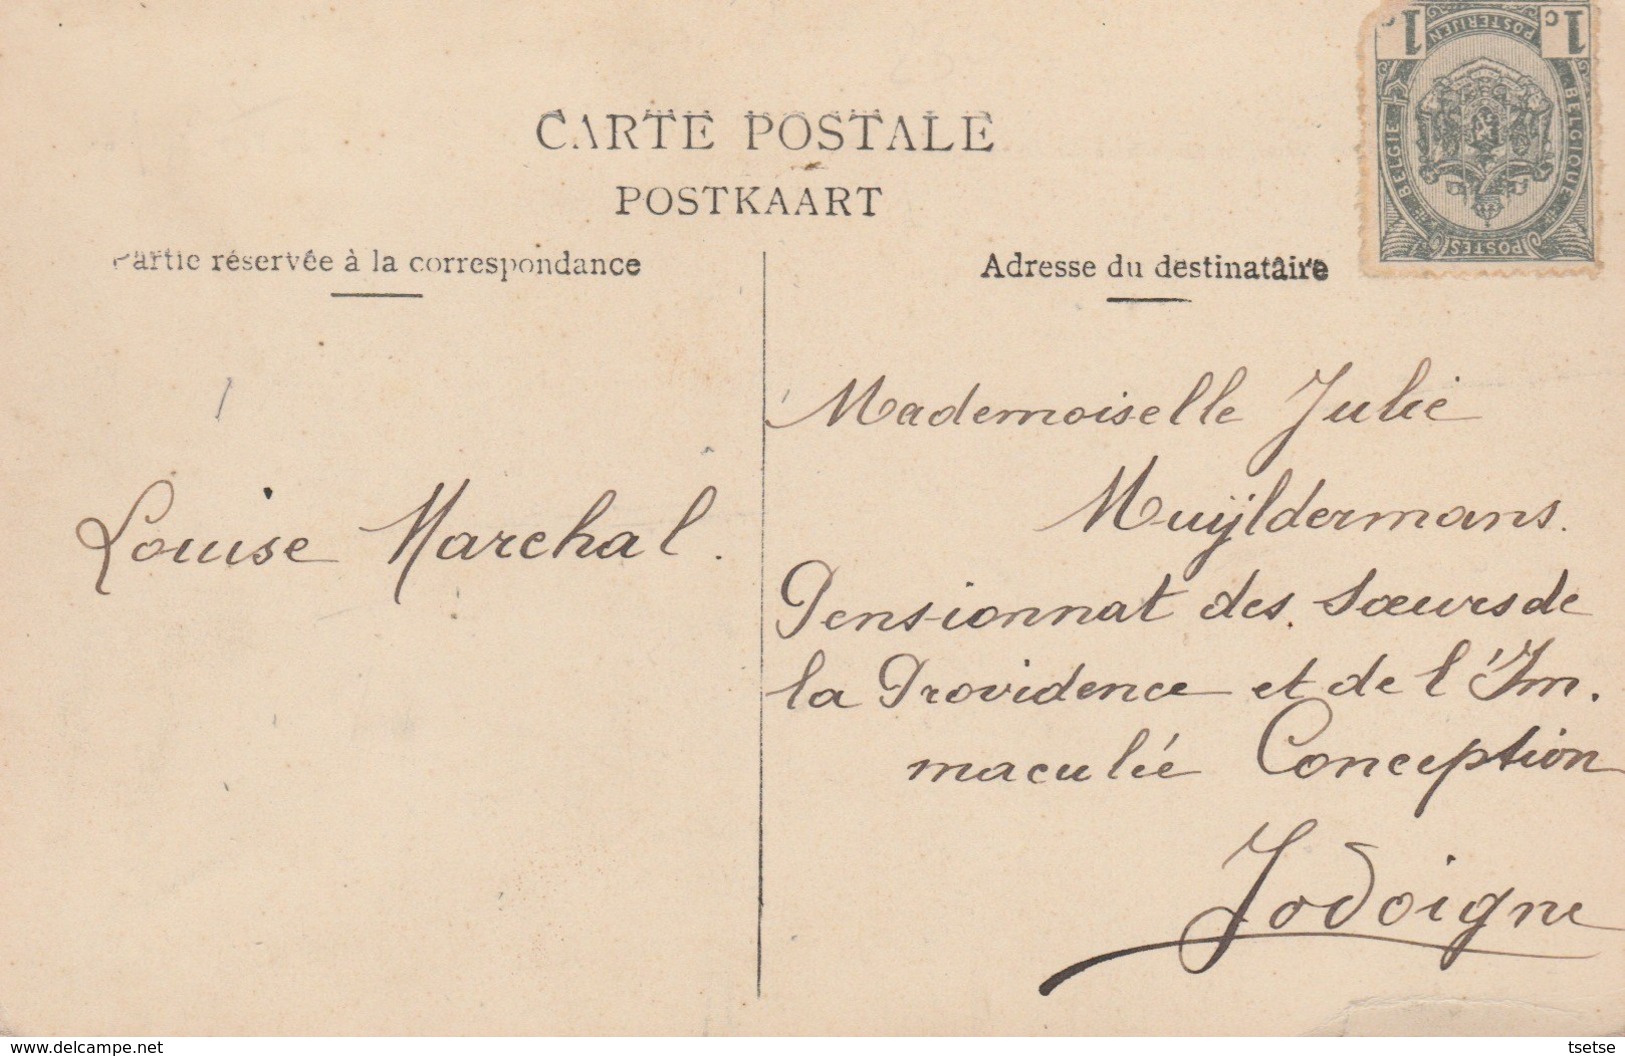 CARTE POSTALE
POSTKAART
Partie réservée à la correspondance
Adresse du destinataire
1c POSTERIJEN 1c
BELGIE BELGIQUE
POSTES
Louise Marchal.
Mademoiselle Julie
Muÿldermans.
Pensionnat des Sœurs de
la Providence et de l'Im.
maculée Conception
Jodoigne
www.delcampe.net
tsetse